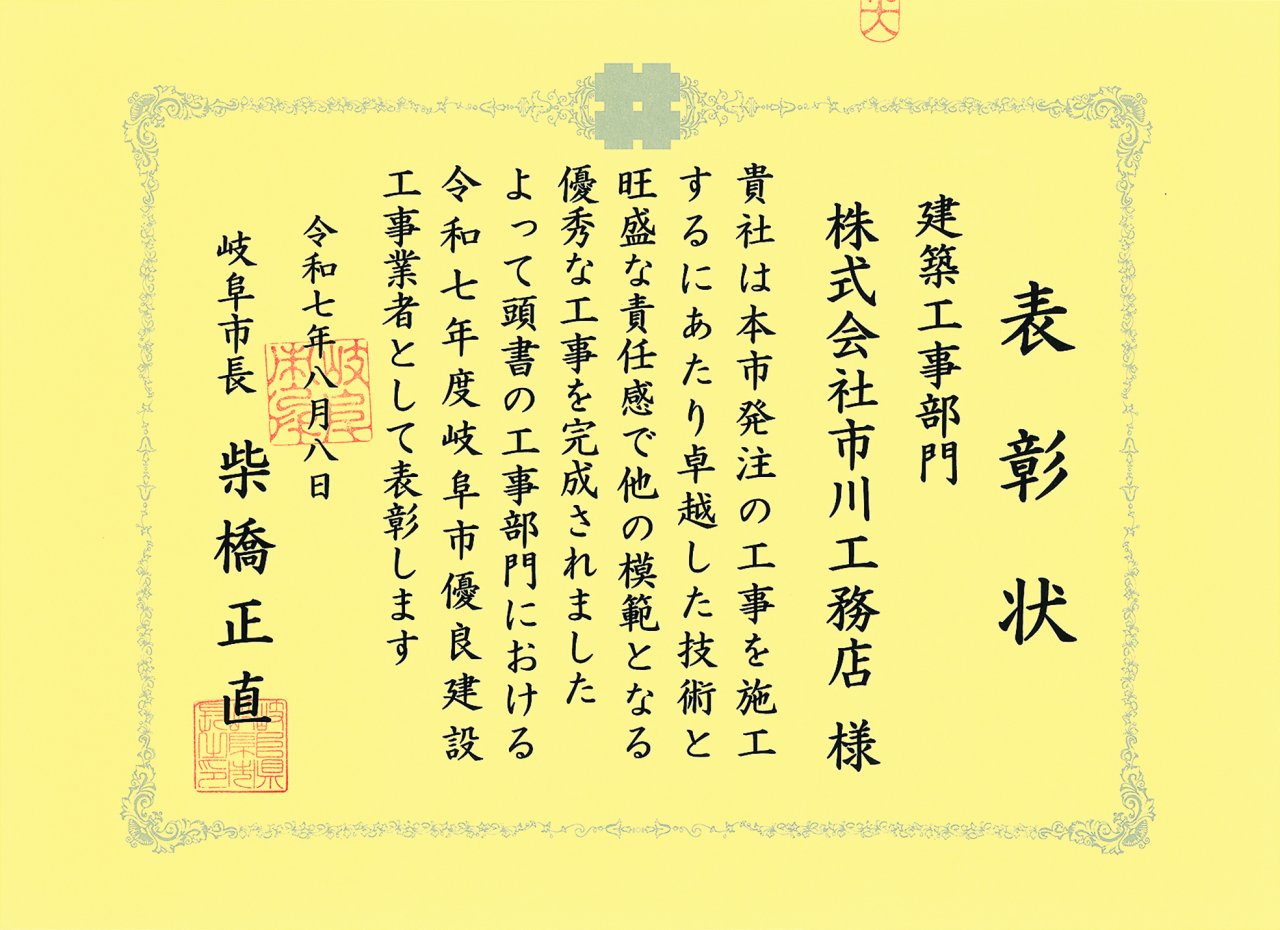 表彰状
建築工事部門
株式会社市川工務店 様
貴社は本市発注の工事を施工
するにあたり卓越した技術と
旺盛な責任感で他の模範となる
優秀な工事を完成されました
よって頭書の工事部門における
令和七年度岐阜市優良建設
工事業者として表彰します
令和七年八月八日
岐阜市長 柴橋正直